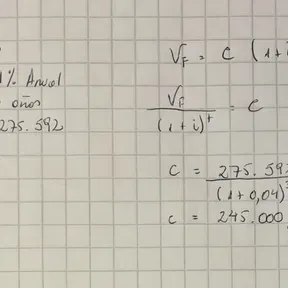 1% Anual
años
275.592
V_F = C (1+i
V_F / (1+i)^t = C
C = 275.592 / (1+0,04)^3
C = 245.000